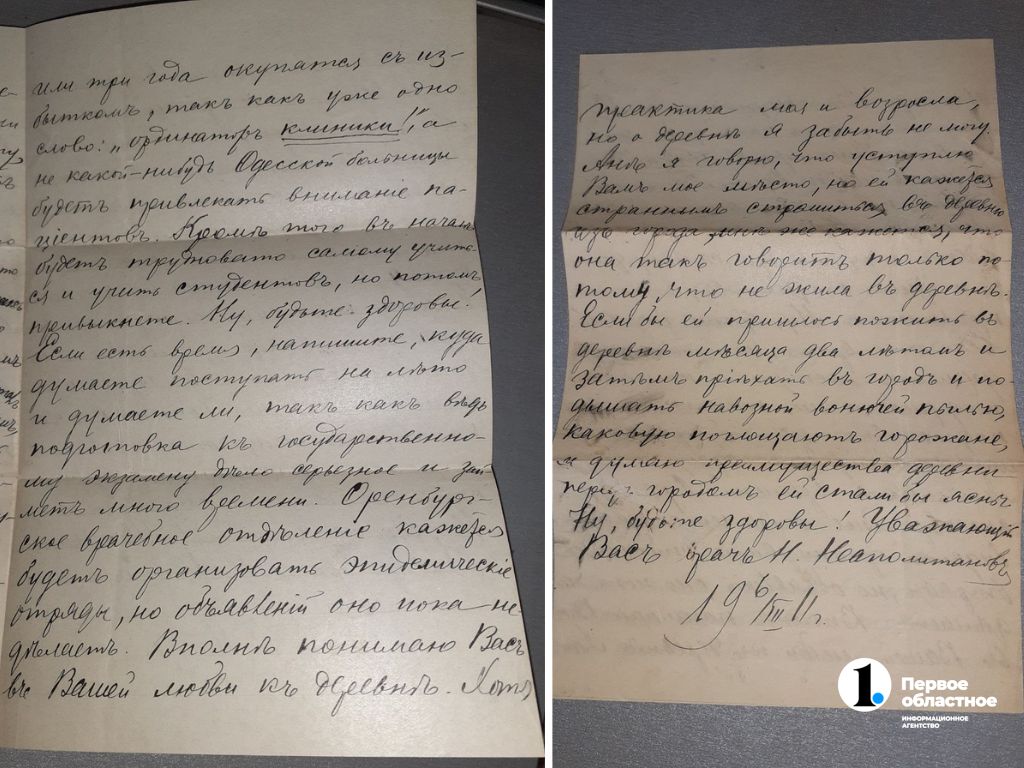 или три года окупятся съ из-
быткомъ, такъ какъ уже одно
слово: „ординаторъ клиники!", а
не какой-нибудь Одесской больницы
будетъ привлекать вниманіе па-
ціентовъ. Кромѣ того въ началѣ
будетъ трудновато самому учить-
ся и учить студентовъ, но потомъ
привыкнете. Ну, будьте здоровы!
Если есть время, напишите, куда
думаете поступать на лѣто
и думаете ли, такъ какъ вѣдь
подготовка къ государственно-
му экзамену дѣло серьезное и зай-
метъ много времени. Оренбург-
ское врачебное отдѣленіе кажется
будетъ организовать эпидемическіе
отряды, но объявленій оно пока не
дѣлаетъ. Вполнѣ понимаю Васъ
въ Вашей любви къ деревнѣ. Хотя
практика моя и возросла,
но о деревнѣ я забыть не могу.
Анѣ я говорю, что уступлю
Вамъ мое мѣсто, но ей кажется
страннымъ стремиться въ деревню
изъ города, мнѣ же кажется, что
она такъ говоритъ только по-
тому, что не жила въ деревнѣ.
Если бы ей пришлось пожить въ
деревнѣ мѣсяца два лѣтомъ и
затѣмъ пріѣхать въ городъ и по-
дышать навозной вонючей пылью,
каковую поглощаютъ горожане,
я думаю преимущества деревни
передъ городомъ ей стали бы яснѣе.
Ну, будьте здоровы! Уважающій
Васъ врачъ Н. Неаполитановъ
19 6/III 11 г.
1.
Первое
областное
ИНФОРМАЦИОННОЕ
АГЕНТСТВО